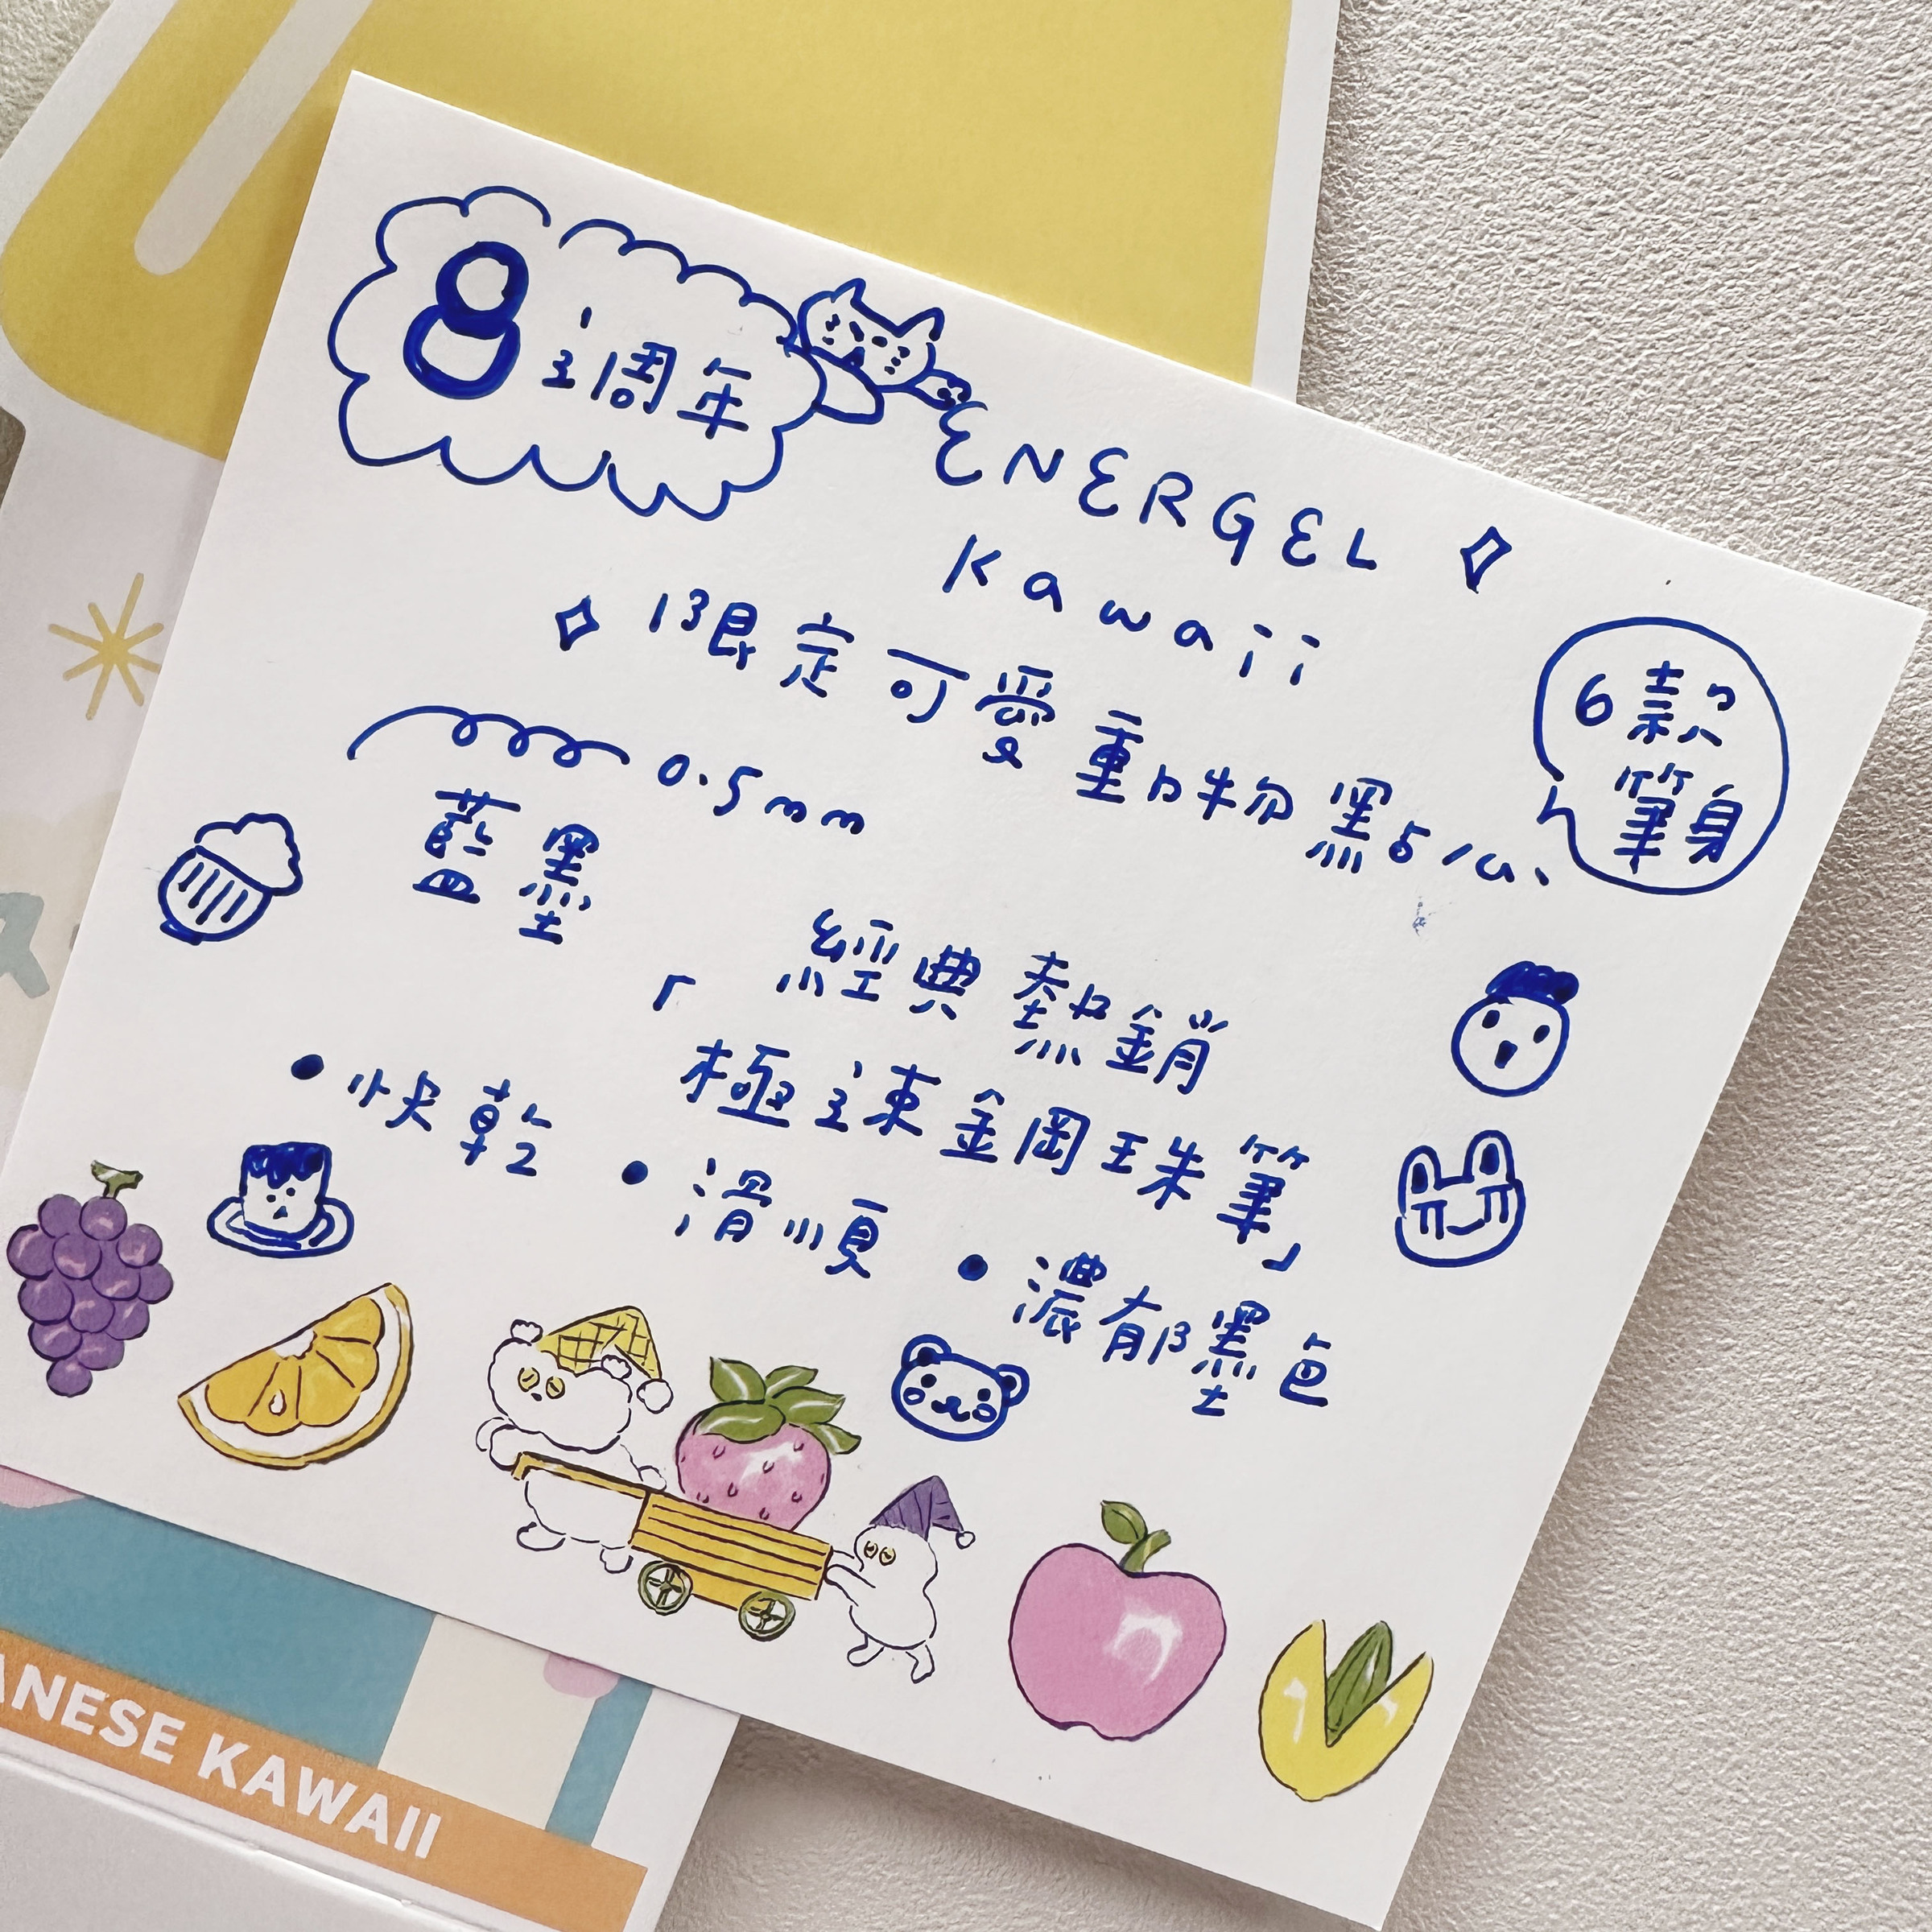 8週年
ENERGEL
Kawaii
限定可愛動物黑點心
6款
筆身
0.5mm
藍墨
經典熱銷
「極速鋼珠筆」
• 快乾
• 滑順
• 濃郁墨色
ANESE KAWAII